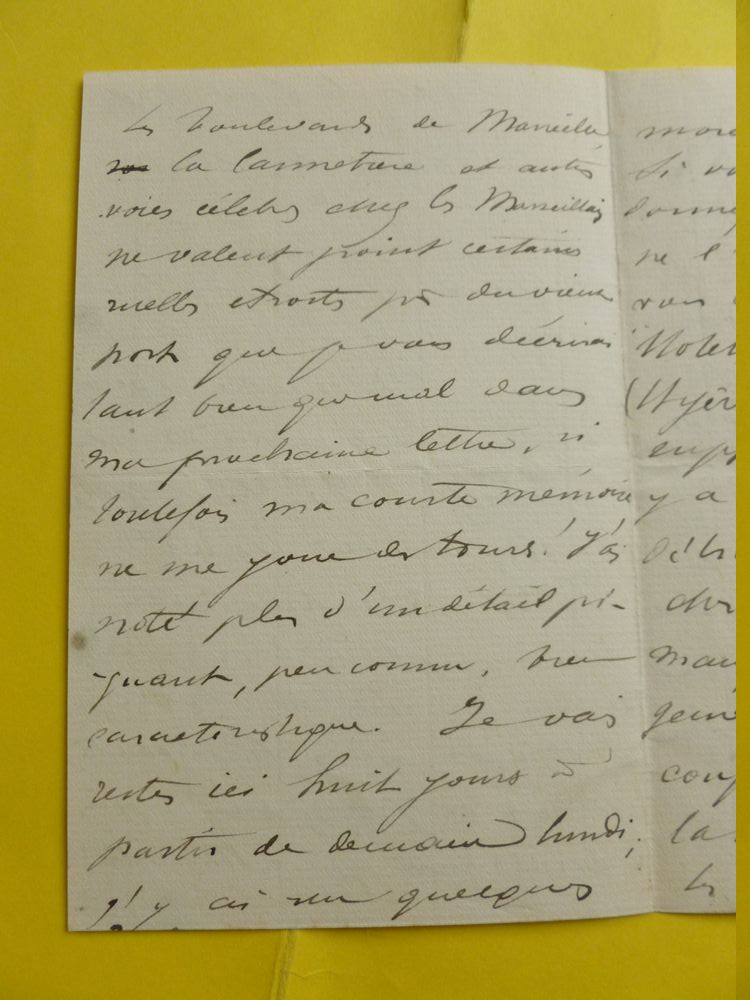 les boulevards de Marseille
la Cannebière et autres
voies célèbres chez les Marseillais
ne valent point certaines
ruelles étroites près du vieux
port que je vous décrirai
tant bien que mal dans
ma prochaine lettre, si
toutefois ma courte mémoire
ne me joue des tours! J'ai
noté plus d'un détail pi-
quant, peu connu, bien
caractéristique. Je vais
rester ici huit jours à
partir de demain lundi;
j'y ai vu quelques
ne l'
vous
Hôtel
(Hyèr
y a
la
les